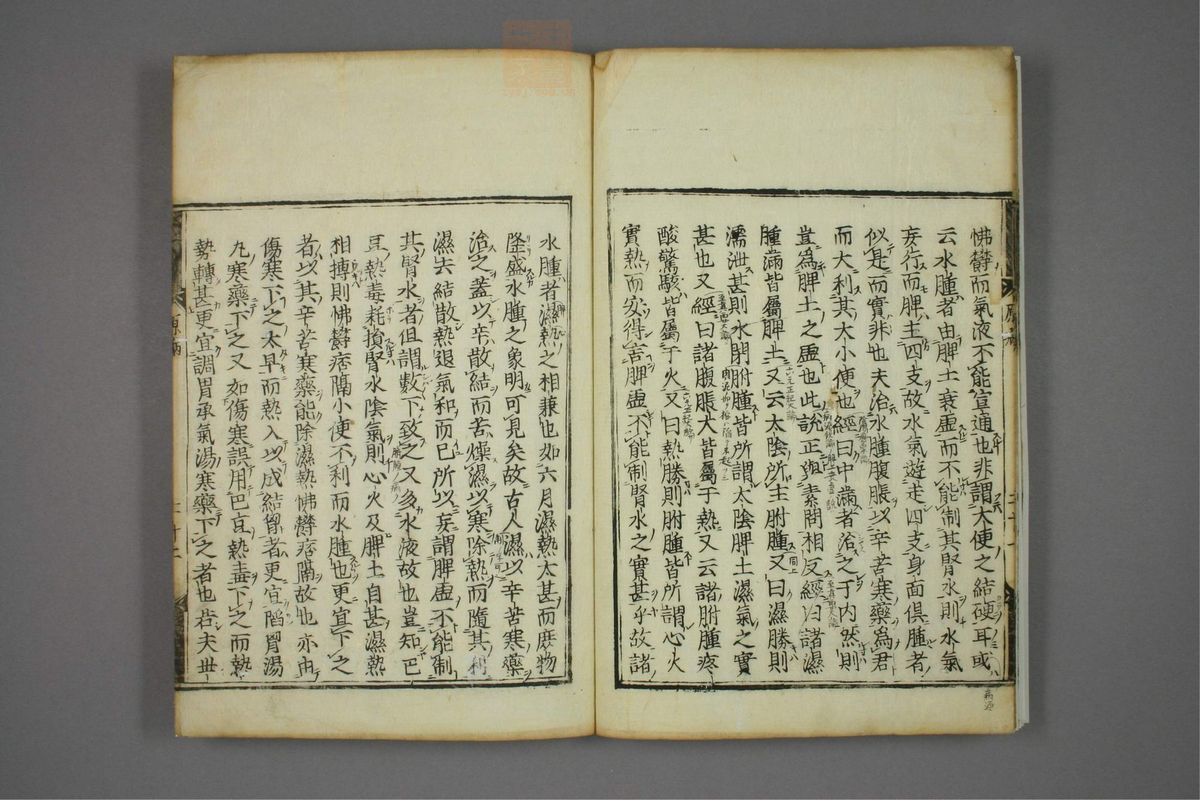 怫欝而氣液不能宣通也非謂大便之結硬耳或
云水腫者由脾土衰虚而不能制其腎水則水氣
妄行而脾主四支故水氣遊走四支身面俱腫者
似是而實非也夫治水腫腹脹以辛苦寒藥爲君
而大利其大小便也經曰中滿者治之于内然則
豈爲脾土之虚也此說正與素問相反經曰諸濕
腫滿皆屬脾土又云太陰所主胕腫又曰濕勝則
濡泄甚則水閉胕腫皆所謂太陰脾土濕氣之實
甚也又經曰諸腹脹大皆屬于熱又云諸胕腫疼
酸驚駭皆屬于火又曰熱勝則胕腫皆所謂心火
實熱而安得言脾虚不能制腎水之實甚乎故諸
水腫者濕熱之相兼也如六月濕熱太甚而庶物
隆盛水腫之象明可見矣故古人濕以辛苦寒藥
治之蓋以辛散結而苦燥濕以寒除熱而隨其利
濕去結散熱退氣和而已所以妄謂脾虚不能制
其腎水者但謂數下致之又多水液故也豈知巴
豆熱毒耗損腎水陰氣則心火及脾土自甚濕熱
相搏則怫欝痞隔小便不利而水腫也更宜下之
者以其辛苦寒藥能除濕熱怫欝痞隔故也亦由
傷寒下之太早而熱入以成結胷者更宜陷胷湯
丸寒藥下之又如傷寒誤用巴豆熱毒下之而熱
勢轉甚更宜調胃承氣湯寒藥下之者也若夫世